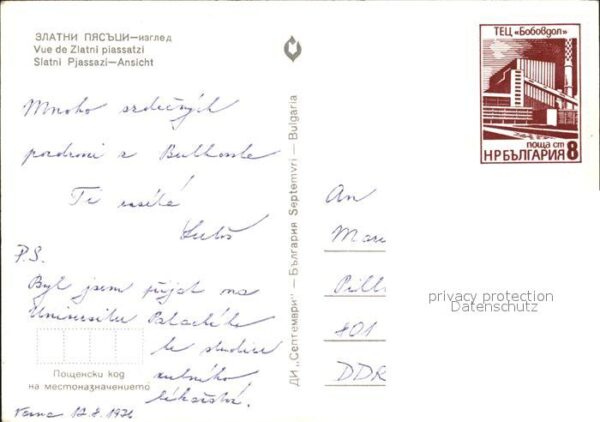 ЗЛАТНИ ПЯСЪЦИ—изглед
Vue de Zlatni piassatzi
Slatni Pjassazi—Ansicht
ТЕЦ „Бобовдол"
поща ст
НРБЪЛГАРИЯ 8
ДИ „Септември" — България Septemvri — Bulgaria
Mnoho srdečných
pozdravů z Bulharska
Ti zasílá
Luboš
P.S.
Byl jsem přijat na
Universitu Palackého
ke studiu
zubního
lékařství.
Пощенски код
на местоназначението
Varna 12.8.1976
An
401
DDR
privacy protection
Datenschutz